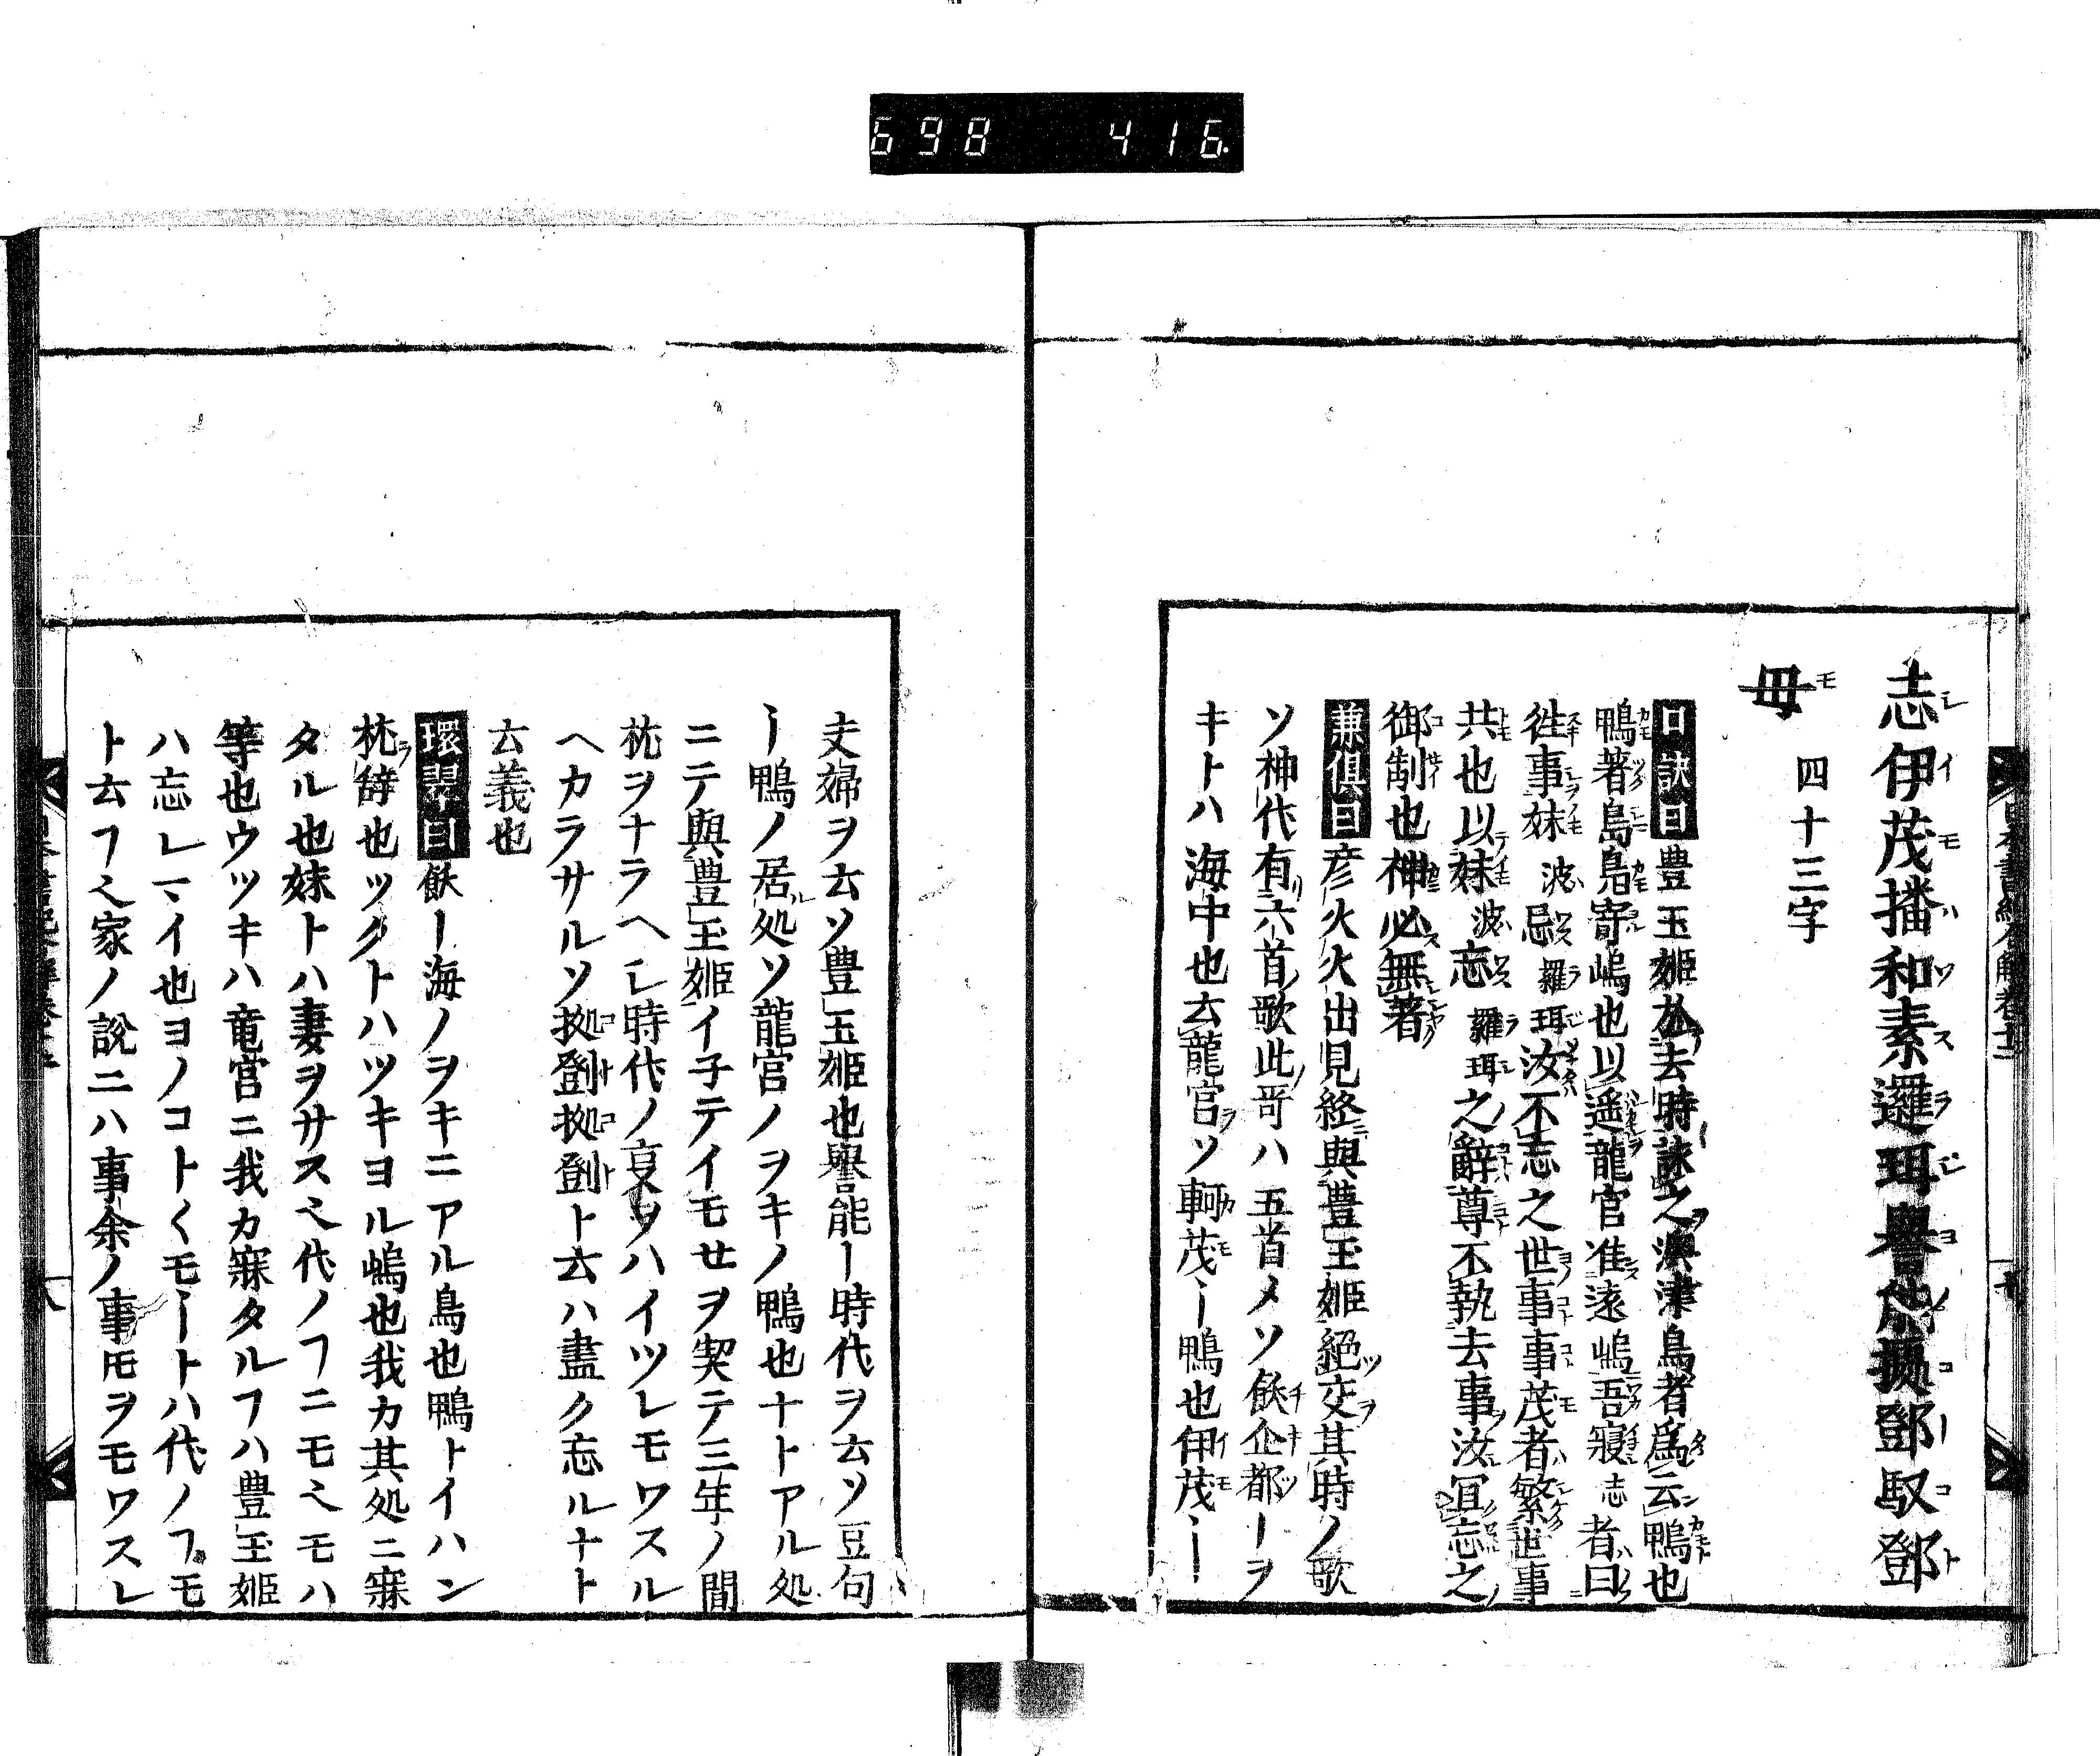 698 416
志伊茂播和素邏珥譽能據鄧馭鄧
母 四十三字
口訣曰豊玉姫 去時詠之澳津鳥者爲云鴨也
鴨著島鳧寄嶋也以遥龍宮准遠嶋吾寝志者曰
徃事妹波忌羅珥汝不忘之世事事茂者繁世事
共也以妹波忘羅珥之辭尊不執去事汝冝忘之
御制也神必無著
兼倶曰彦火火出見終與豊玉姫絕交其時ノ歌
ソ神代有六首歌此哥ハ五首メソ飫企都ーヲ
キトハ海中也云龍宮ソ軻茂ー鴨也伊茂ー
夫婦ヲ云ソ豊玉姫也譽能ー時代ヲ云ソ豆句
ー鴨ノ居処ソ龍宮ノヲキノ鴨也ナトアル処
ニテ與豊玉姫イ子テイモセヲ契テ三年ノ間
枕ヲナラヘシ時代ノ哀ヲハイツレモワスル
ヘカラサルソ據鄧據鄧ト云ハ盡ク忘ルナト
云義也
環翠曰飫ー海ノヲキニアル鳥也鴨トイハン
枕辞也ツクトハツキヨル嶋也我カ其処ニ寐
タル也妹トハ妻ヲサスヘ代ノフニモヘモハ
等也ウツキハ竜宮ニ我カ寐タルフハ豊玉姫
ハ忘レマイ也ヨノコト〱モートハ代ノフモ
ト云フヘ家ノ說ニハ事余ノ事ヲモワスレ